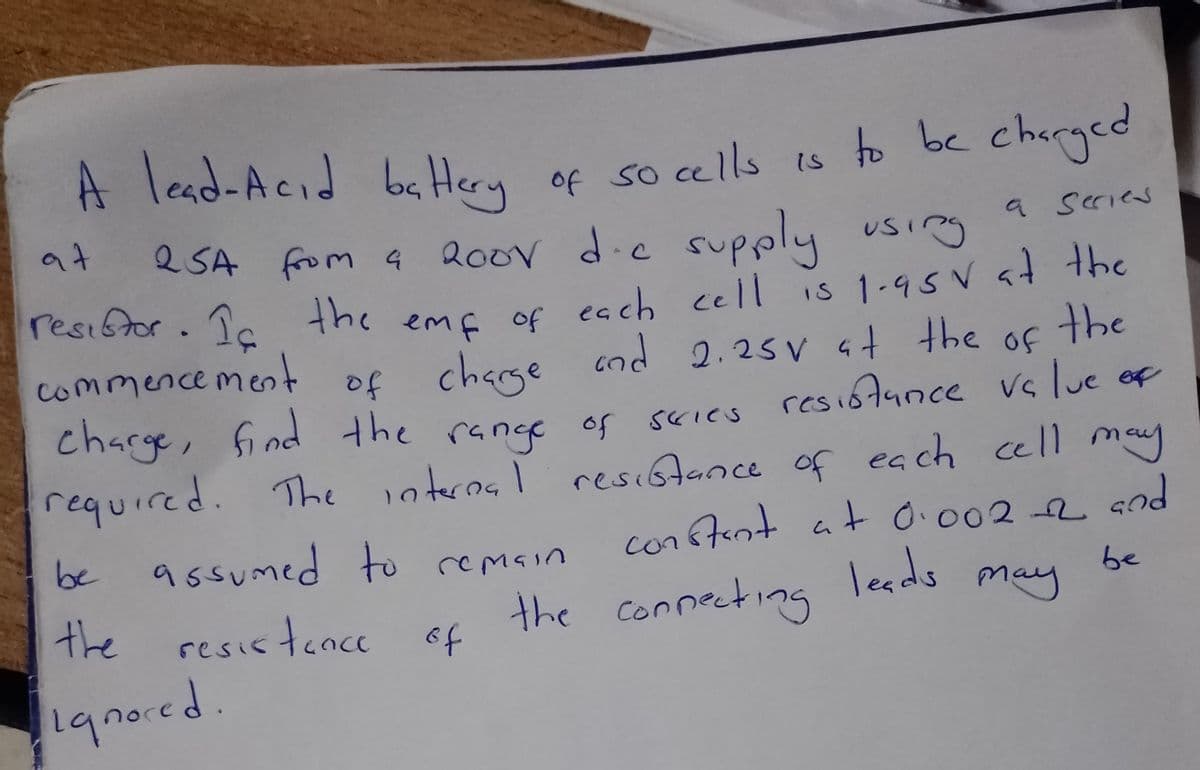 A lead-Acid battery of 50 cells is to be charged
at 25A from a 200V d.c supply using a series
resistor. If the emf of each cell is 1.95V at the
commencement of charge and 2.25V at the of the
charge, find the range of series resistance value of
required. The internal resistance of each cell may
be assumed to remain constant at 0.002 Ω and
the resistance of the connecting leads may be
ignored.